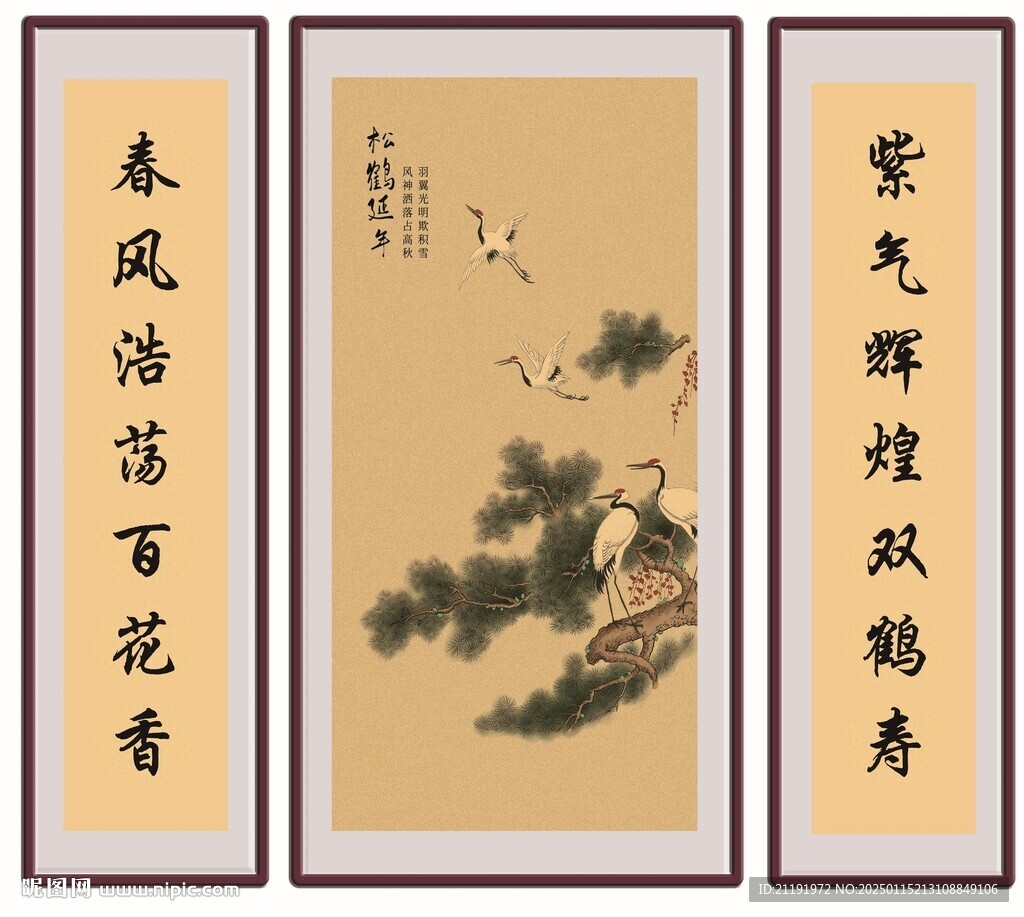 紫气辉煌双鹤寿
松鹤延年
羽翼光明欺积雪
风神洒落占高秋
春风浩荡百花香
昵图网 www.nipic.com
ID:21191972 NO:20250115213108849106